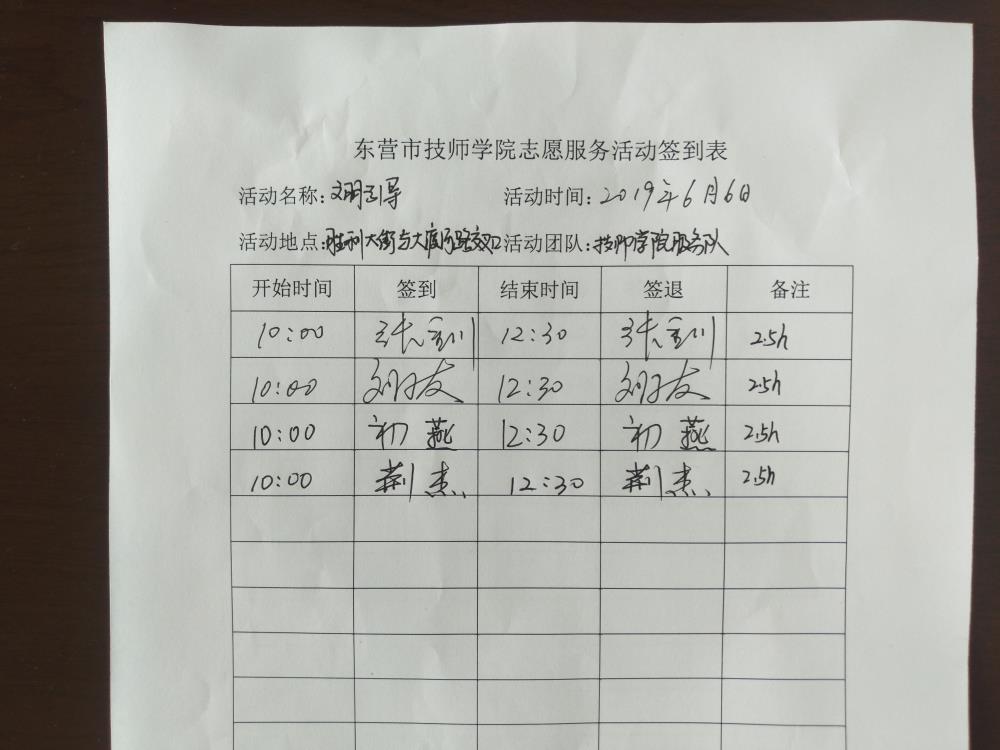 东营市技师学院志愿服务活动签到表
活动名称:文明引导 活动时间:2019年6月6日
活动地点:胜利大街与大庆路交口 活动团队:技师学院服务队
开始时间 签到 结束时间 签退 备注
10:00 12:30 2.5h
10:00 刘友 12:30 刘友 2.5h
10:00 初燕 12:30 初燕 2.5h
10:00 荆杰 12:30 荆杰 2.5h